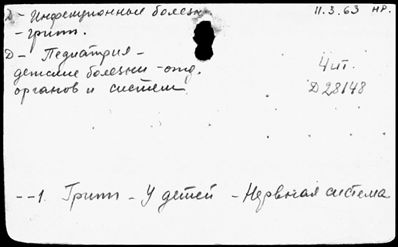 Д- Инфекционные болезн
- грипп.
11.3.63 нр.
Д- Педиатрия -
детские болезни - отд.
органов и систем
4 шт.
Д28148
--1. Грипп - У детей - Нервная система